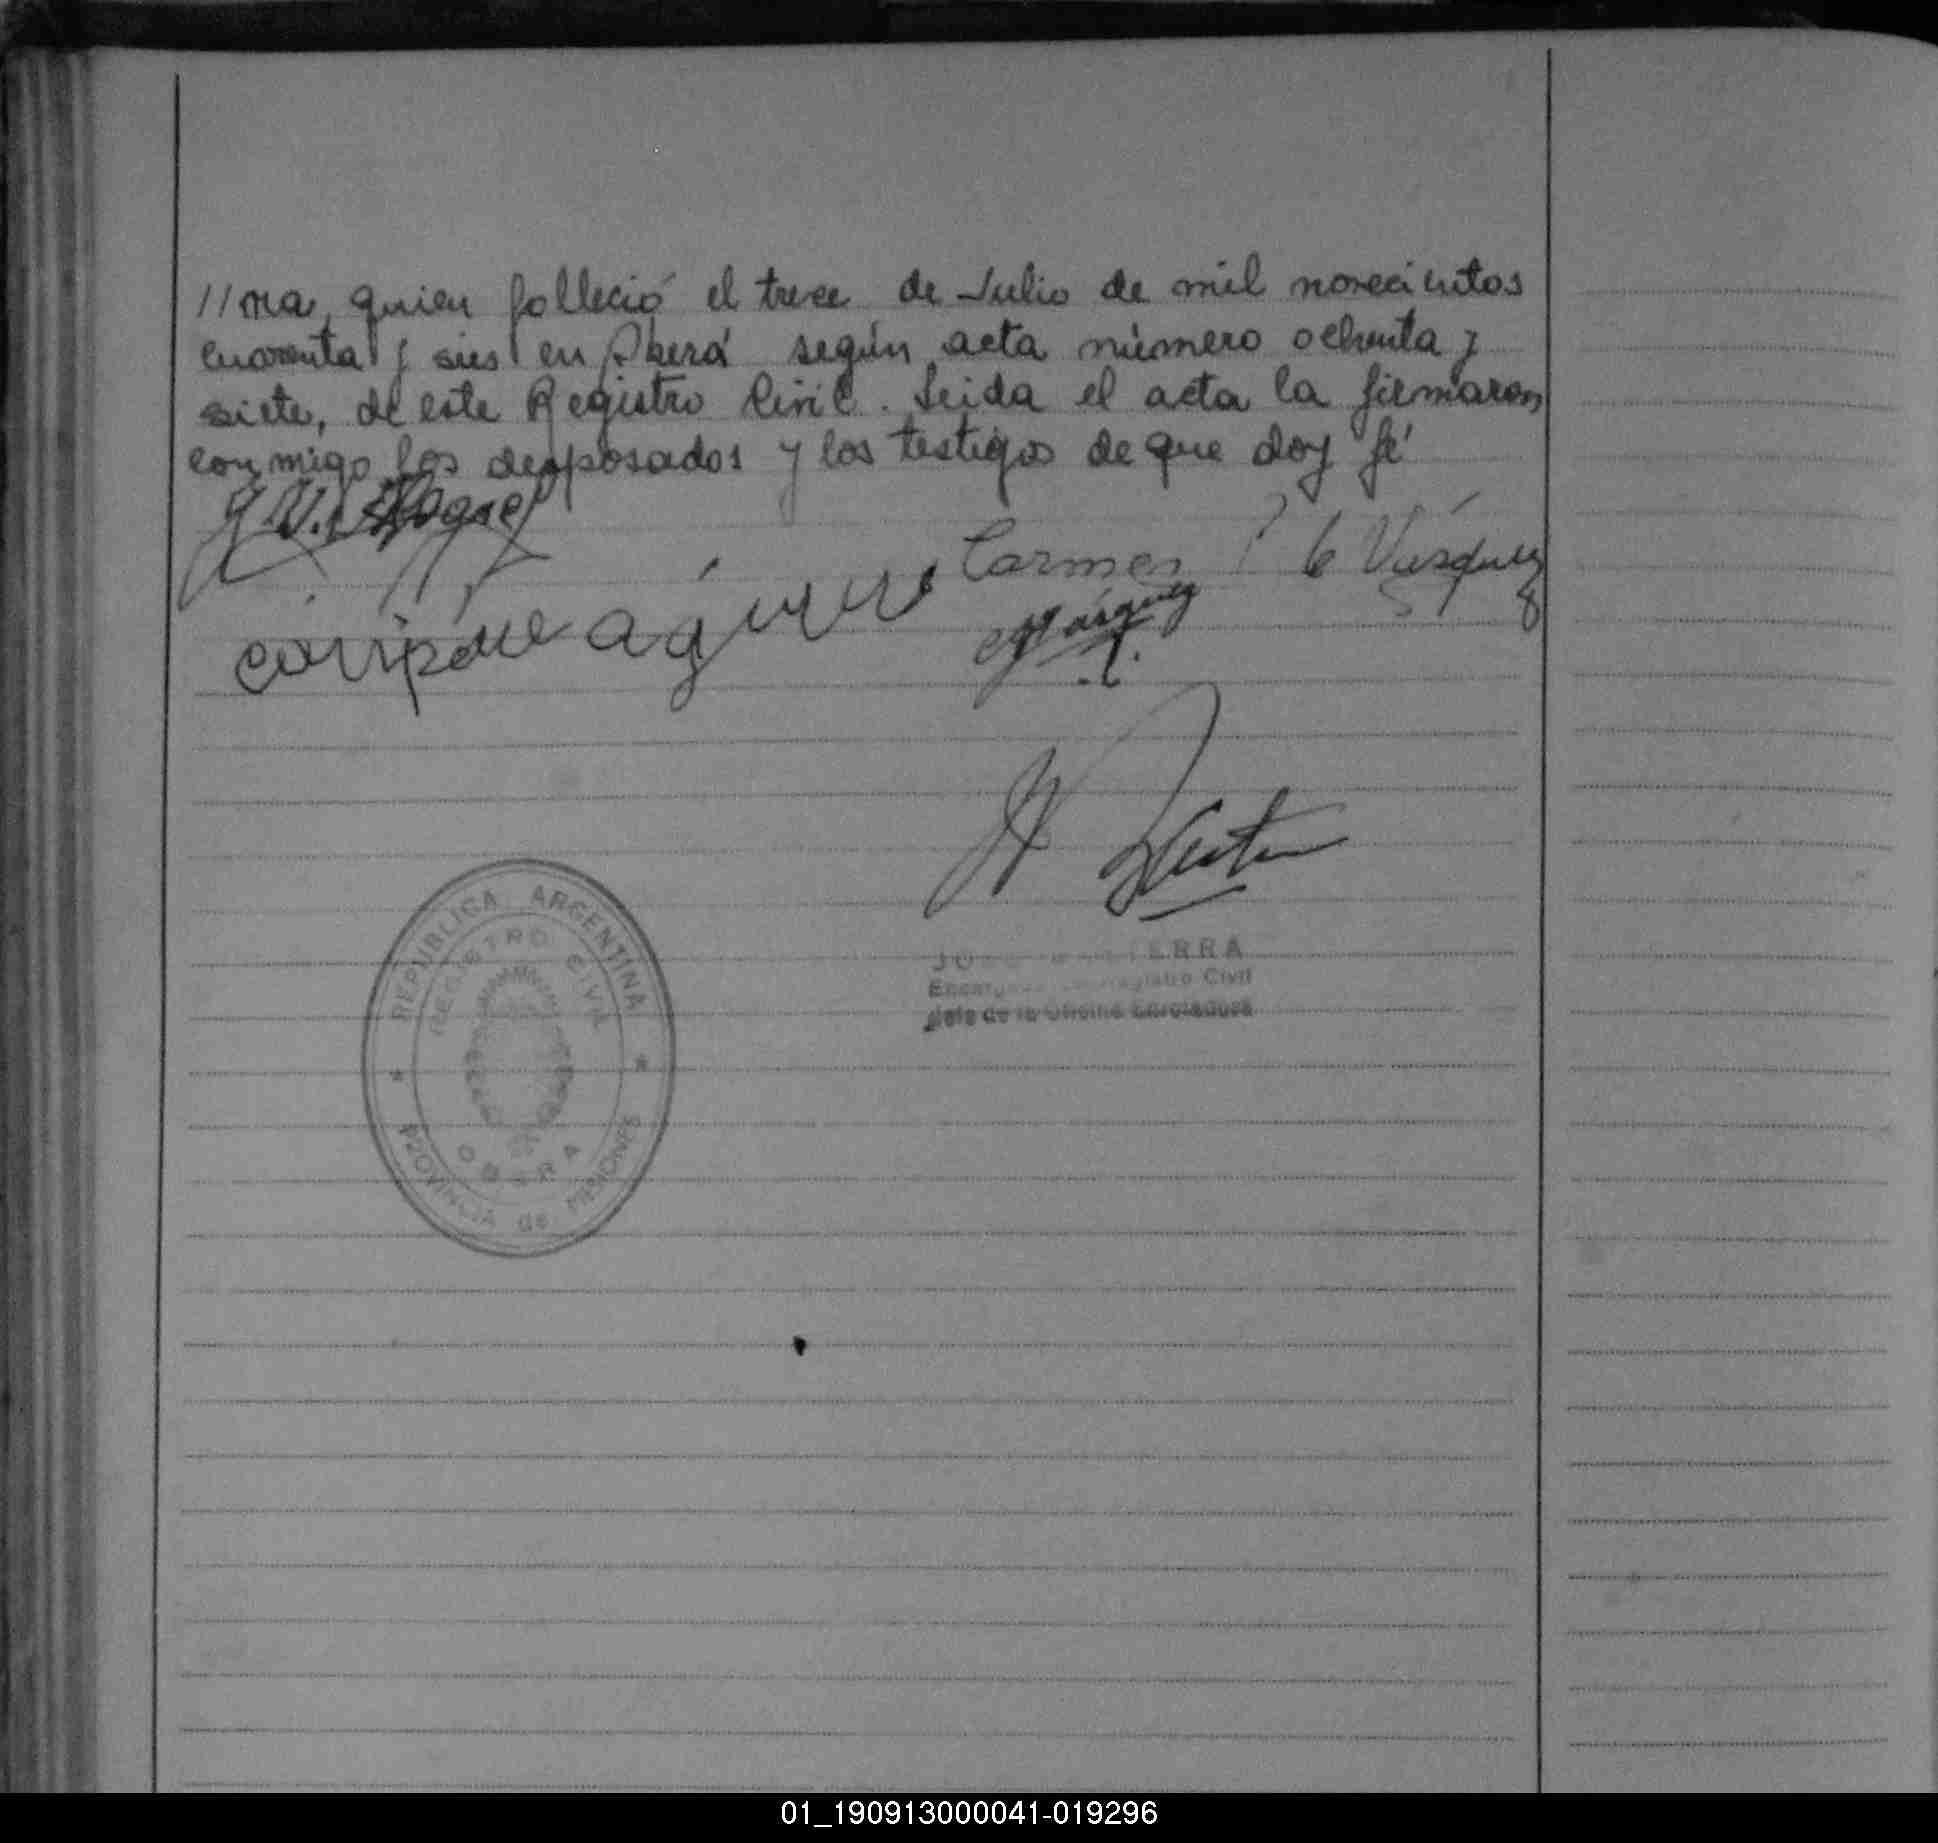 //ma, quien falleció el trece de Julio de mil novecientos
cuarenta y seis en Oberá según acta número ochenta y
siete, de este Registro Civil. Leida el acta la firmaron
conmigo los desposados y los testigos de que doy fé
Carmen de Vásquez
REPUBLICA ARGENTINA
REGISTRO CIVIL
OBERA
PROVINCIA de MISIONES
Registro Civil
Jefe de la Oficina Enroladora
01_190913000041-019296